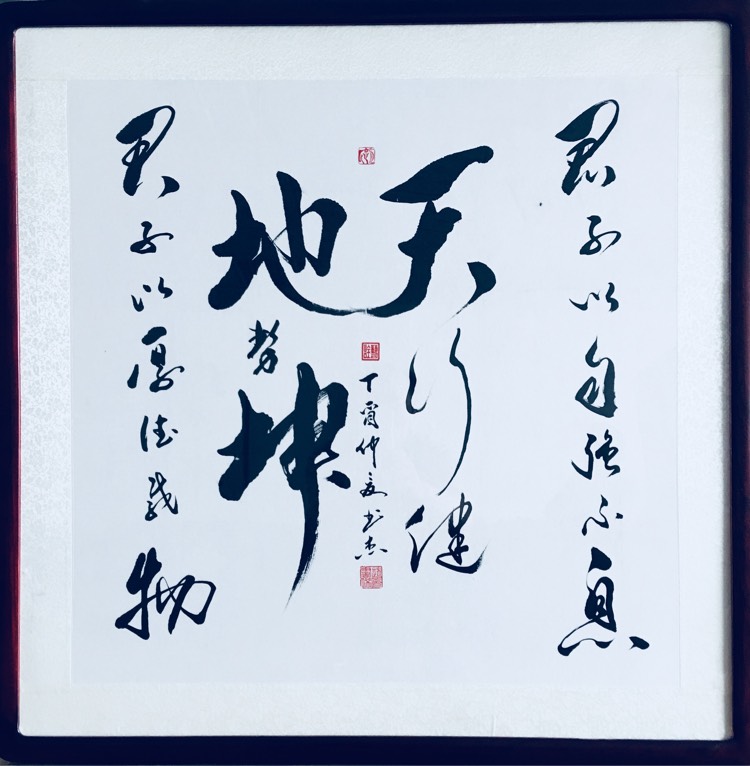 天行健
君子以自强不息
地势坤
君子以厚德载物
丁酉仲夏书杰